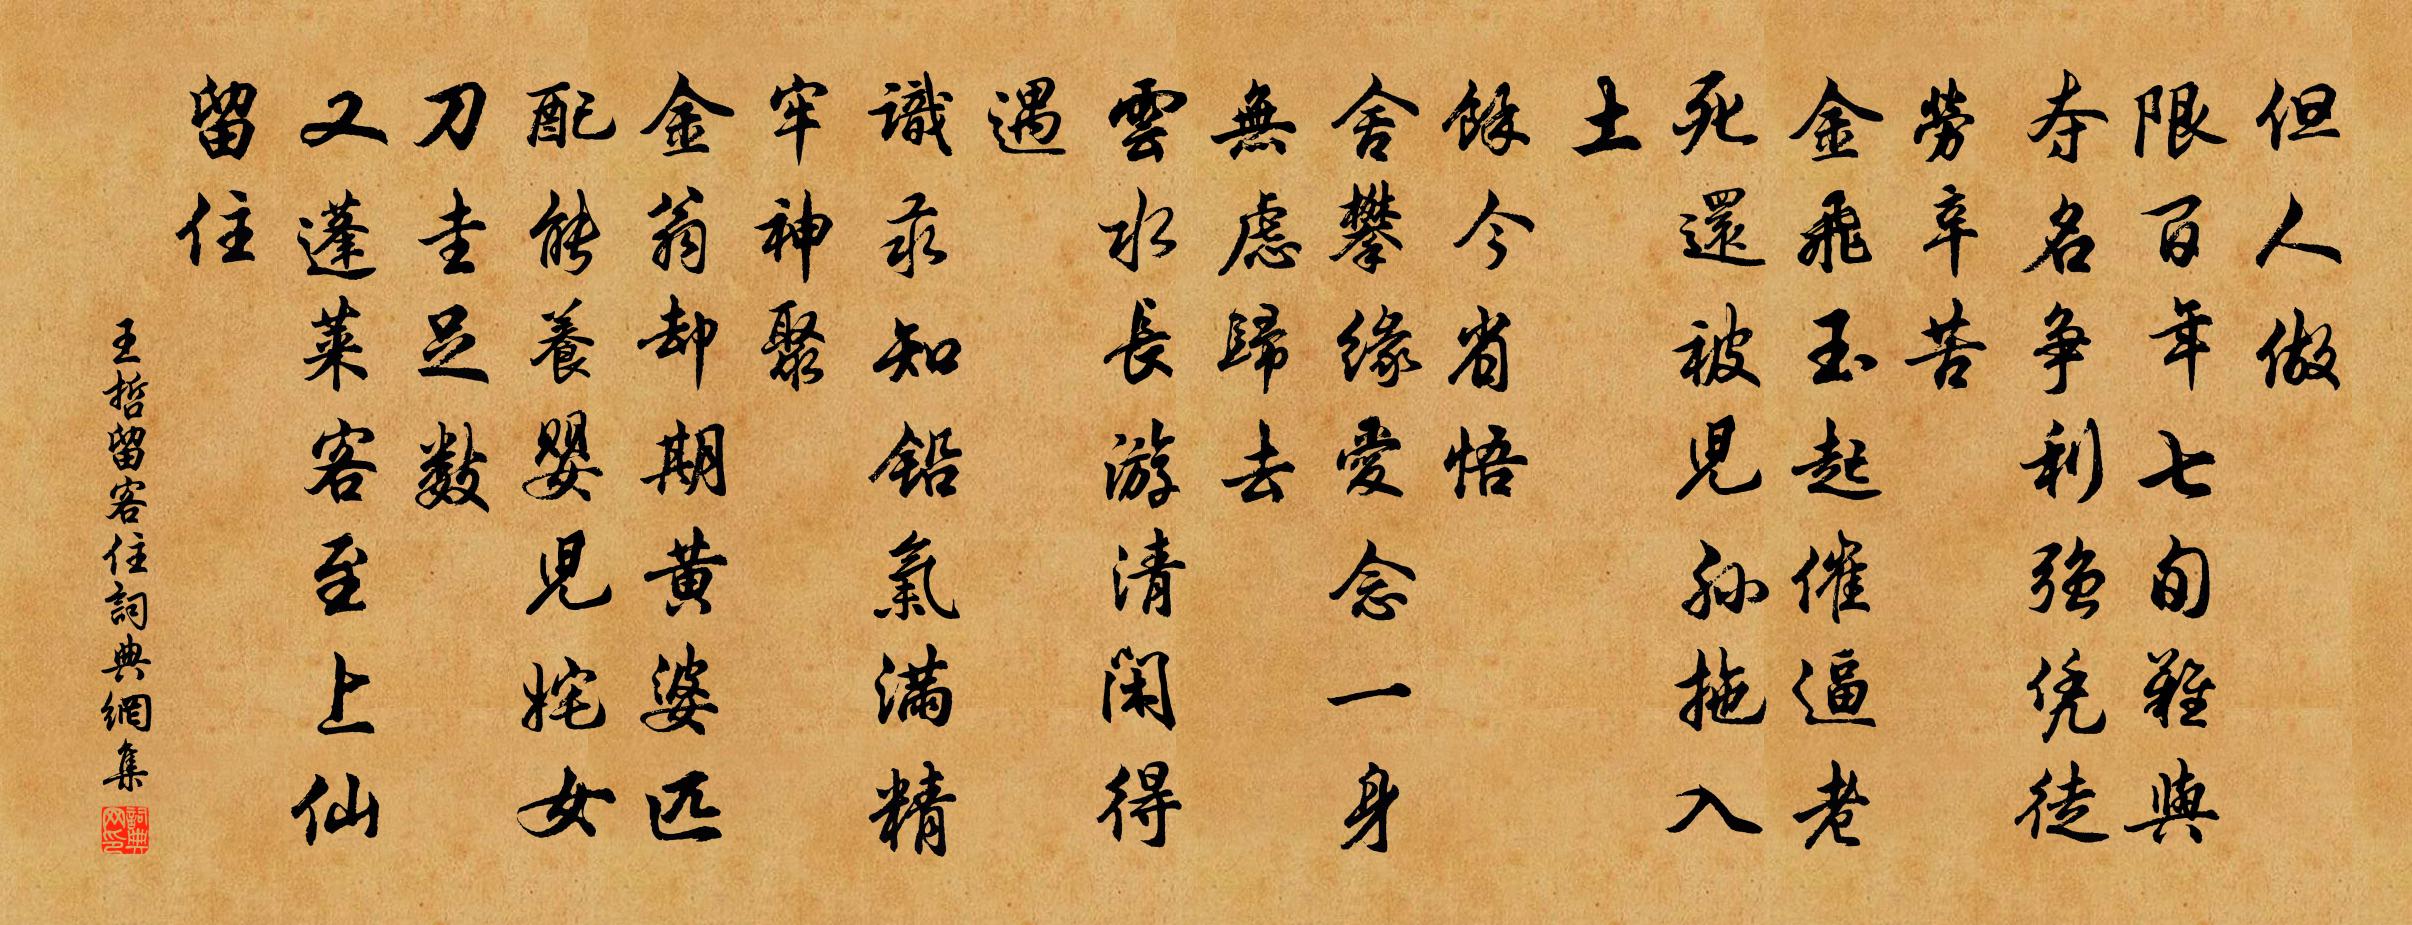 但人做
限百年七旬難與
夺名爭利強凭徒
勞辛苦
金飛玉走催逼老
死還被兒孫拖入
土
餘今省悟
舍攀緣愛念一身
無慮歸去
雲水長游清閑得
遇
識汞知鉛氣滿精
牢神聚
金翁却期黃婆匹
配能養嬰兒姹女
刀圭足數
又蓬萊客至上仙
留住
王哲留客住詞典網集
詞典網印